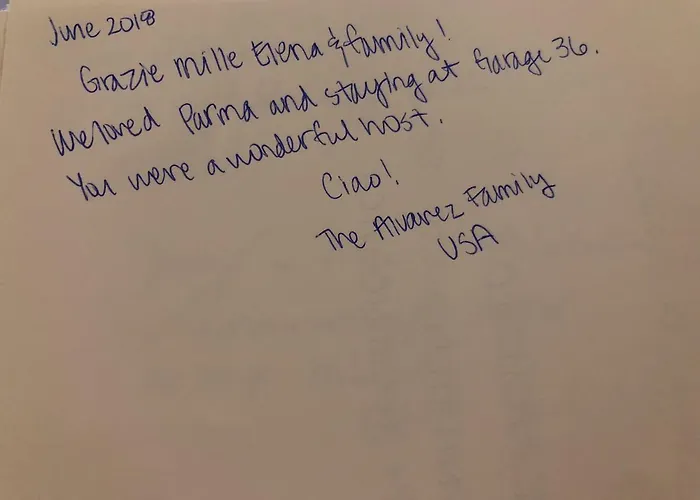 June 2018
Grazie mille Elena & family!
We loved Parma and staying at Garage 36.
You were a wonderful host.
Ciao!
The Alvarez Family
USA